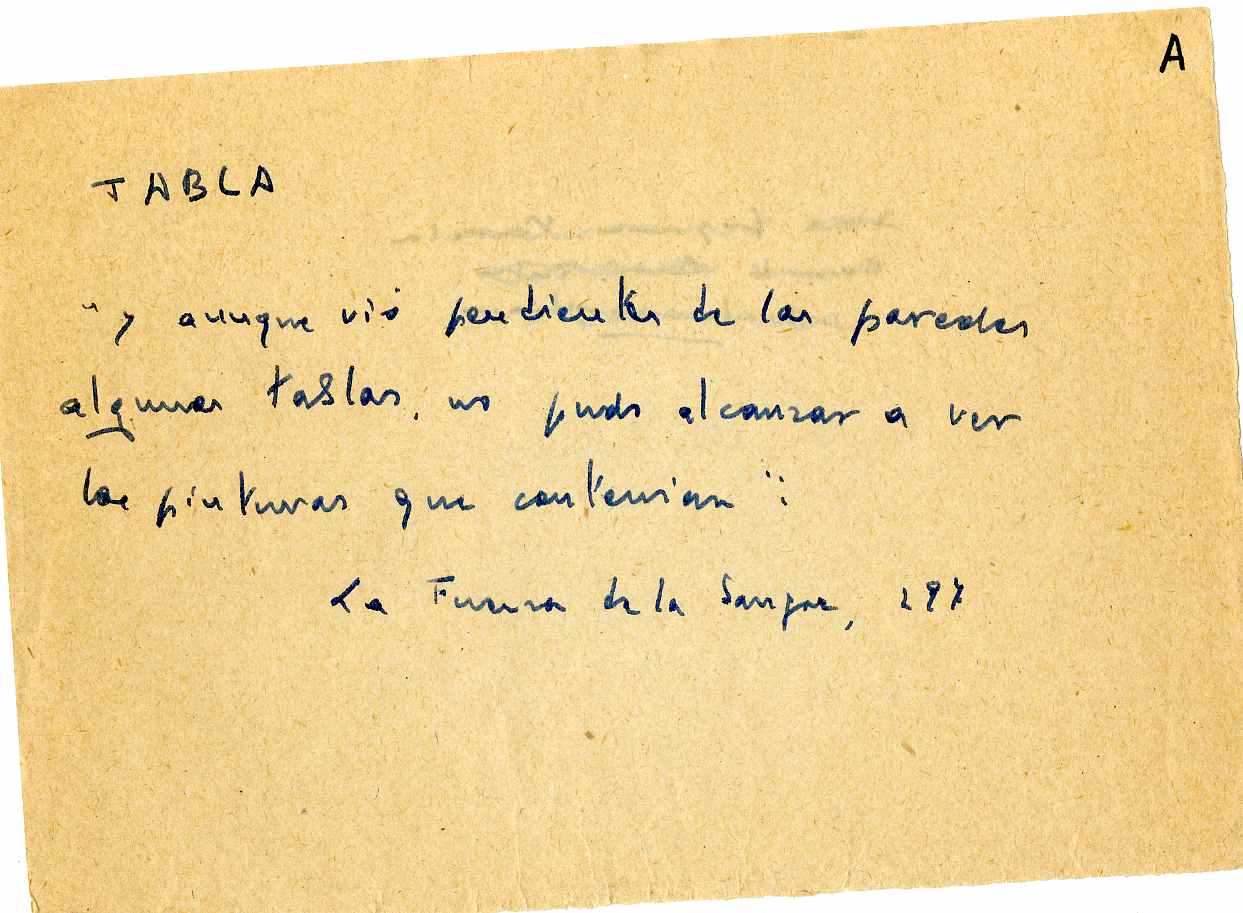 A
TABLA
"y aunque vió pendientes de las paredes
algunas tablas, no pudo alcanzar a ver
las pinturas que contenian";
La Fuerza de la Sangre, 297